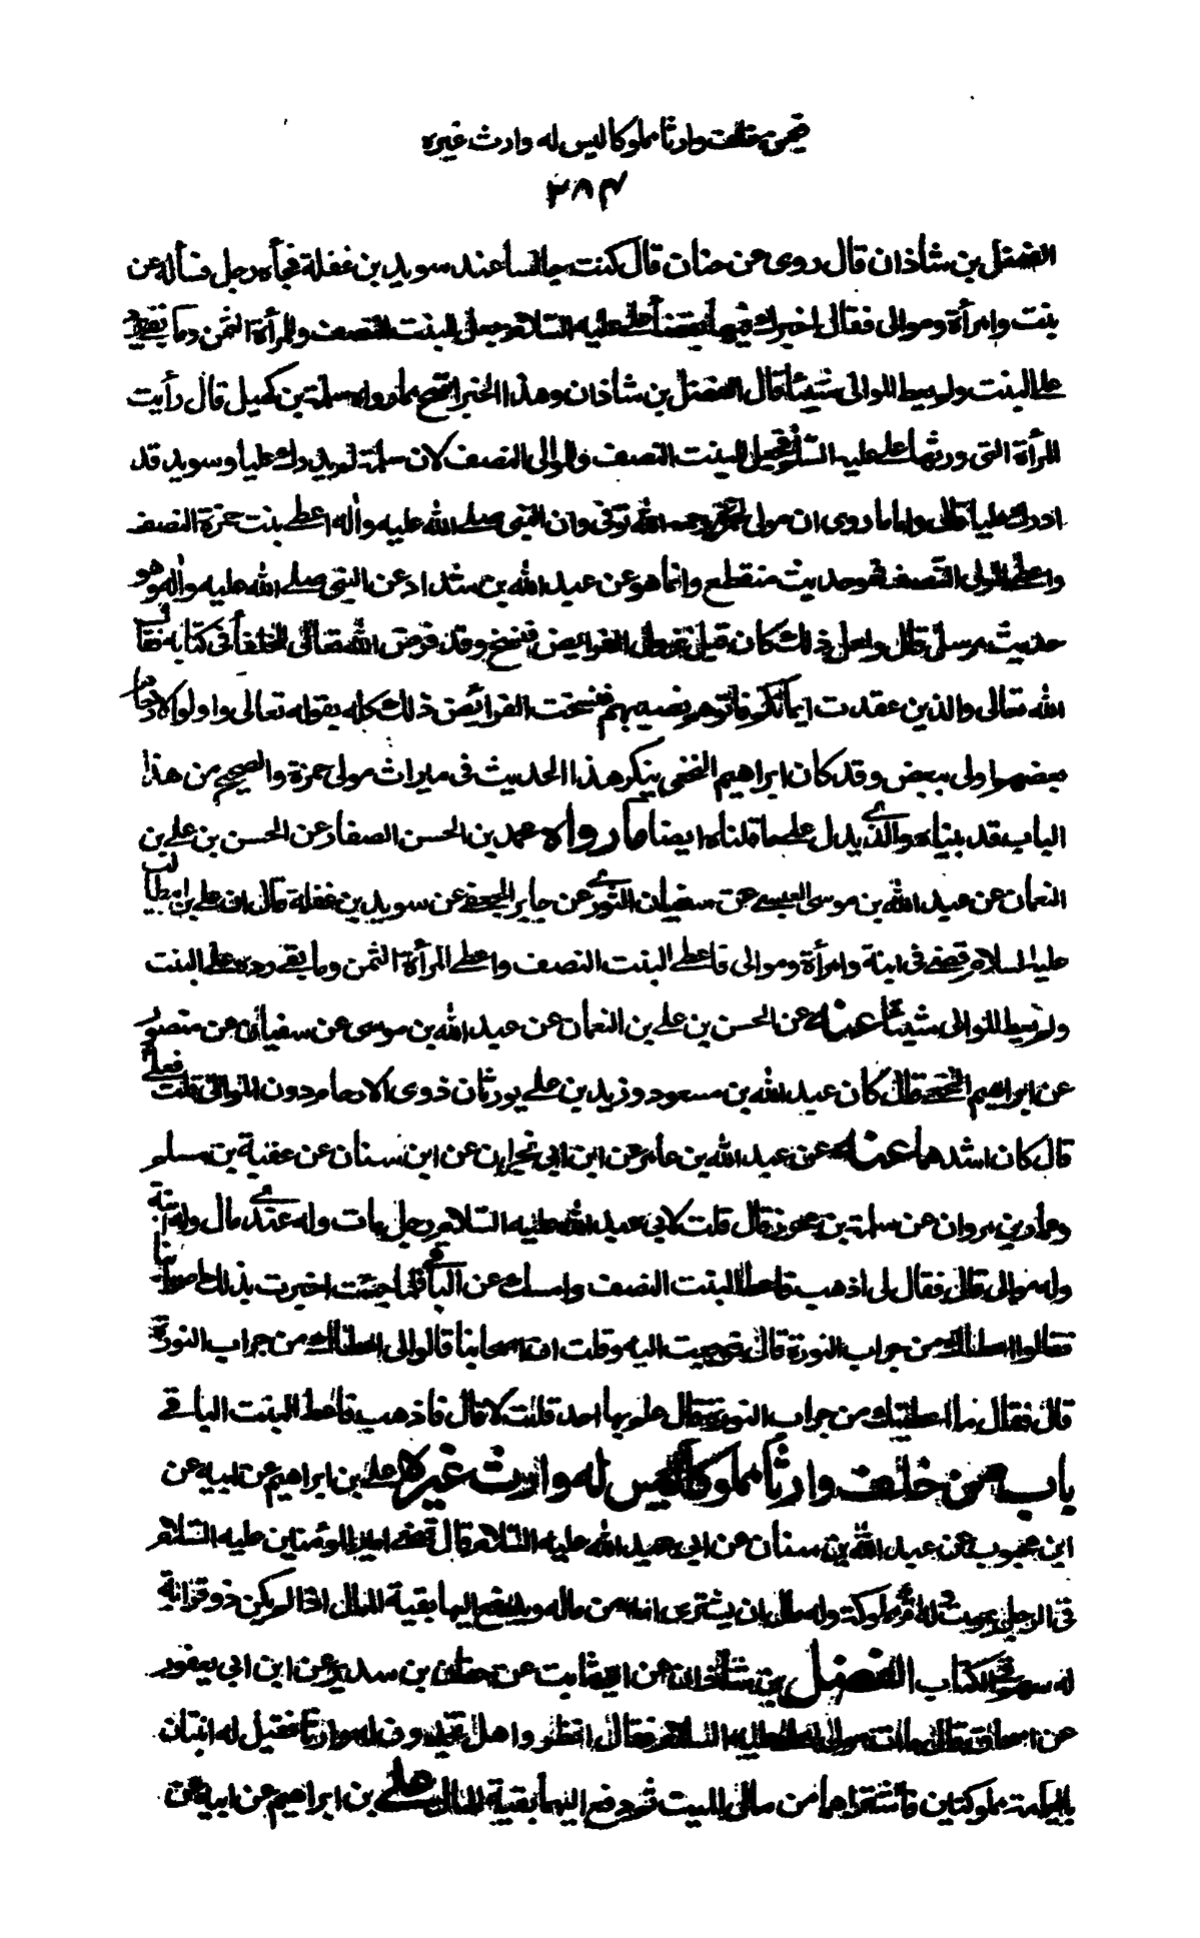 فيمن خلف وارثا مملوكا ليس له وارث غيره
٣٨٤
الفضل بن شاذان قال روى عن حنان قال كنت جالسا عند سويد بن غفلة فجأه رجل فسأله عن
بنت وامرأة وموالى فقال اخبرك فيها بقضأ على عليه السلام جعل للبنت النصف وللمرأة الثمن وما بقى رد
على البنت ولم يعط الموالى شيئا قال الفضل بن شاذان وهذا الخبر اصح مما رواه سلمة بن كهيل قال رأيت
المرأة التى ورثها على عليه السلم فجعل للبنت النصف وللموالى النصف لان سلمة لم يدرك عليا وسويد قد
ادرك عليا قال واما ما روى ان مولى لحمزة رحمه الله توفى وان النبى صلى الله عليه وأله اعطى بنت حمزة النصف
واعطى المولى النصف فهو حديث منقطع وانما هو عن عبد الله بن شداد عن النبى صلى الله عليه وأله وهو
حديث مرسل قال ولعل ذلك كان قبل نزول الفرايض فنسخ وقد فرض الله تعالى للحلفأ فى كتابه فقال
الله تعالى والذين عقدت ايمانكم فأتوهم نصيبهم فنسخت الفرائض ذلك كله بقوله تعالى واولوا الارحام
بعضهم اولى ببعض وقد كان ابراهيم النخعى ينكر هذا الحديث فى ميراث مولى حمزة والصحيح من هذا
الباب قد بيناه والذى يدل على ما قلناه ايضا ما رواه محمد بن الحسن الصفار عن الحسن بن على بن
النعمان عن عبد الله بن موسى العبسى عن سفيان الثورى عن جابر الجعفى عن سويد بن غفلة قال ان على بن ابيطالب
عليه السلام قضى فى ابنة وامرأة وموالى فاعطى البنت النصف واعطى المرأة الثمن وما بقى رده على البنت
ولم يعط الموالى شيئا عنه عن الحسن بن على بن النعمان عن عبد الله بن موسى عن سفيان عن منصور
عن ابراهيم النخعى قال كان عبد الله بن مسعود وزيد بن على يورثان ذوى الارحام دون الموالى قلت فعلى
قال كان اشدهما عنه عن عبد الله بن عامر عن ابن ابى نجران عن ابن سنان عن عقبة بن مسلم
وعمار بن مروان عن سلمة بن محرز قال قلت لابى عبد الله عليه السلام رجل مات وله عندى مال وله ابنة
وله موالى قال فقال لى اذهب فاعط البنت النصف وامسك عن الباقى فلما جئت اخبرت بذلك اصحابنا
فقالوا اعطاك من جراب النورة قال فرجعت اليه وقلت ان اصحابنا قالوا لى اعطاك من جراب النورة
قال فقال ما اعطيتك من جراب النورة فقال علم بها احد قلت لا قال فاذهب فاعط البنت الباقى
باب من خلف وارثا مملوكا ليس له وارث غيره على بن ابراهيم عن ابيه عن
ابن محبوب عن عبد الله بن سنان عن ابى عبد الله عليه السلام قال قضى امير المؤمنين عليه السلام
فى الرجل يموت وله ام مملوكة وله مال ان يشترى امه من ماله ويدفع اليها بقية المال اذا لم يكن ذو قرابة
له سهم فى الكتاب الفضل بن شاذان عن ابن ثابت عن حنان بن سدير عن ابن ابى يعفور
عن اسحاق قال مات مولى لعلى عليه السلام فقال انظروا هل تجدون له وارثا فقيل له ابنتان
باليمامة مملوكتين فاشتراهما من مال الميت ثم دفع اليهما بقية المال على بن ابراهيم عن ابيه عن